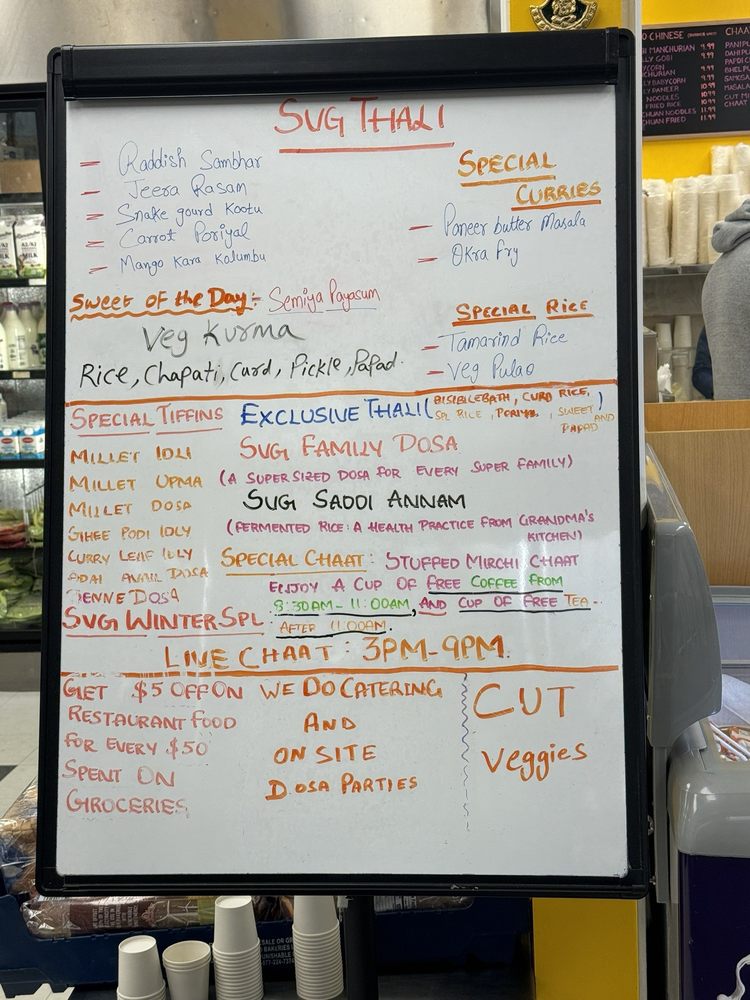 SVG THALI
- Raddish Sambhar
- Jeera Rasam
- Snake gourd Kootu
- Carrot Poriyal
- Mango Kara Kolumbu
SPECIAL
CURRIES
- Paneer butter Masala
- Okra Fry
Sweet of the Day:- Semiya Payasum
Veg Kurma
Rice, Chapati, Curd, Pickle, Papad.
SPECIAL RICE
- Tamarind Rice
- Veg Pulao
SPECIAL TIFFINS
MILLET IDLI
MILLET UPMA
MILLET DOSA
GHEE PODI IDLY
CURRY LEAF IDLY
ADAI AVAIL DOSA
BENNE DOSA
EXCLUSIVE THALI (BISIBILEBATH, CURD RICE,
SPL RICE, PORIYAL, SWEET AND
PAPAD)
SVG FAMILY DOSA
(A SUPER SIZED DOSA FOR EVERY SUPER FAMILY)
SVG SADDI ANNAM
(FERMENTED RICE: A HEALTH PRACTICE FROM GRANDMA'S
KITCHEN)
SPECIAL CHAAT: STUFFED MIRCHI CHAAT
ENJOY A CUP OF FREE COFFEE FROM
8:30AM-11:00AM, AND CUP OF FREE TEA
AFTER 11:00AM.
SVG WINTER SPL:
LIVE CHAAT: 3PM-9PM.
GET $5 OFF ON
RESTAURANT FOOD
FOR EVERY $50
SPENT ON
GROCERIES
WE DO CATERING
AND
ON SITE
DOSA PARTIES
CUT
Veggies
CHINESE
MANCHURIAN 9.99
GOBI 9.99
BABYCORN
PANEER
NOODLES
FRIED RICE
NOODLES 11.99
FRIED 11.99